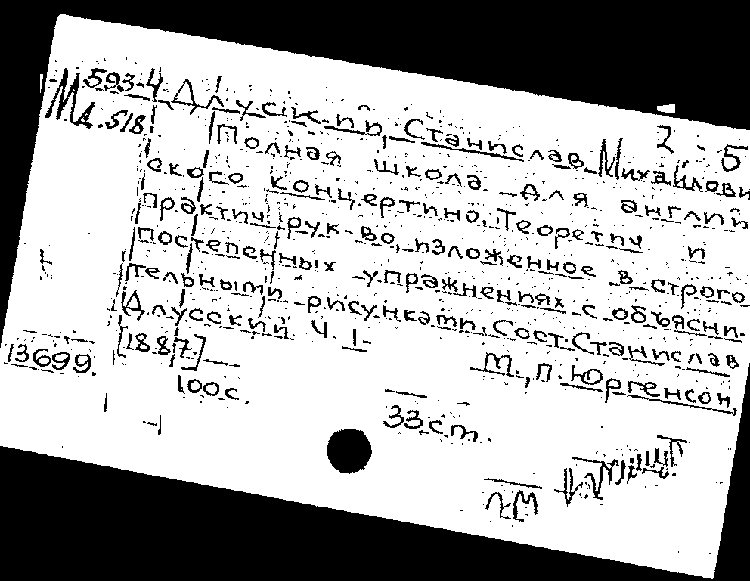 593-4 Длусский, Станислав Михайлович
Мд.518 2-5
Полная школа для англий-
ского концертино. Теоретич и
практич. рук-во, изложенное в строго
постепенных упражнениях с объясни-
тельными рисунками. Сост. Станислав
Длусский Ч. I.
М., П. Юргенсон,
[1887]
13699.
100 с.
33 ст.